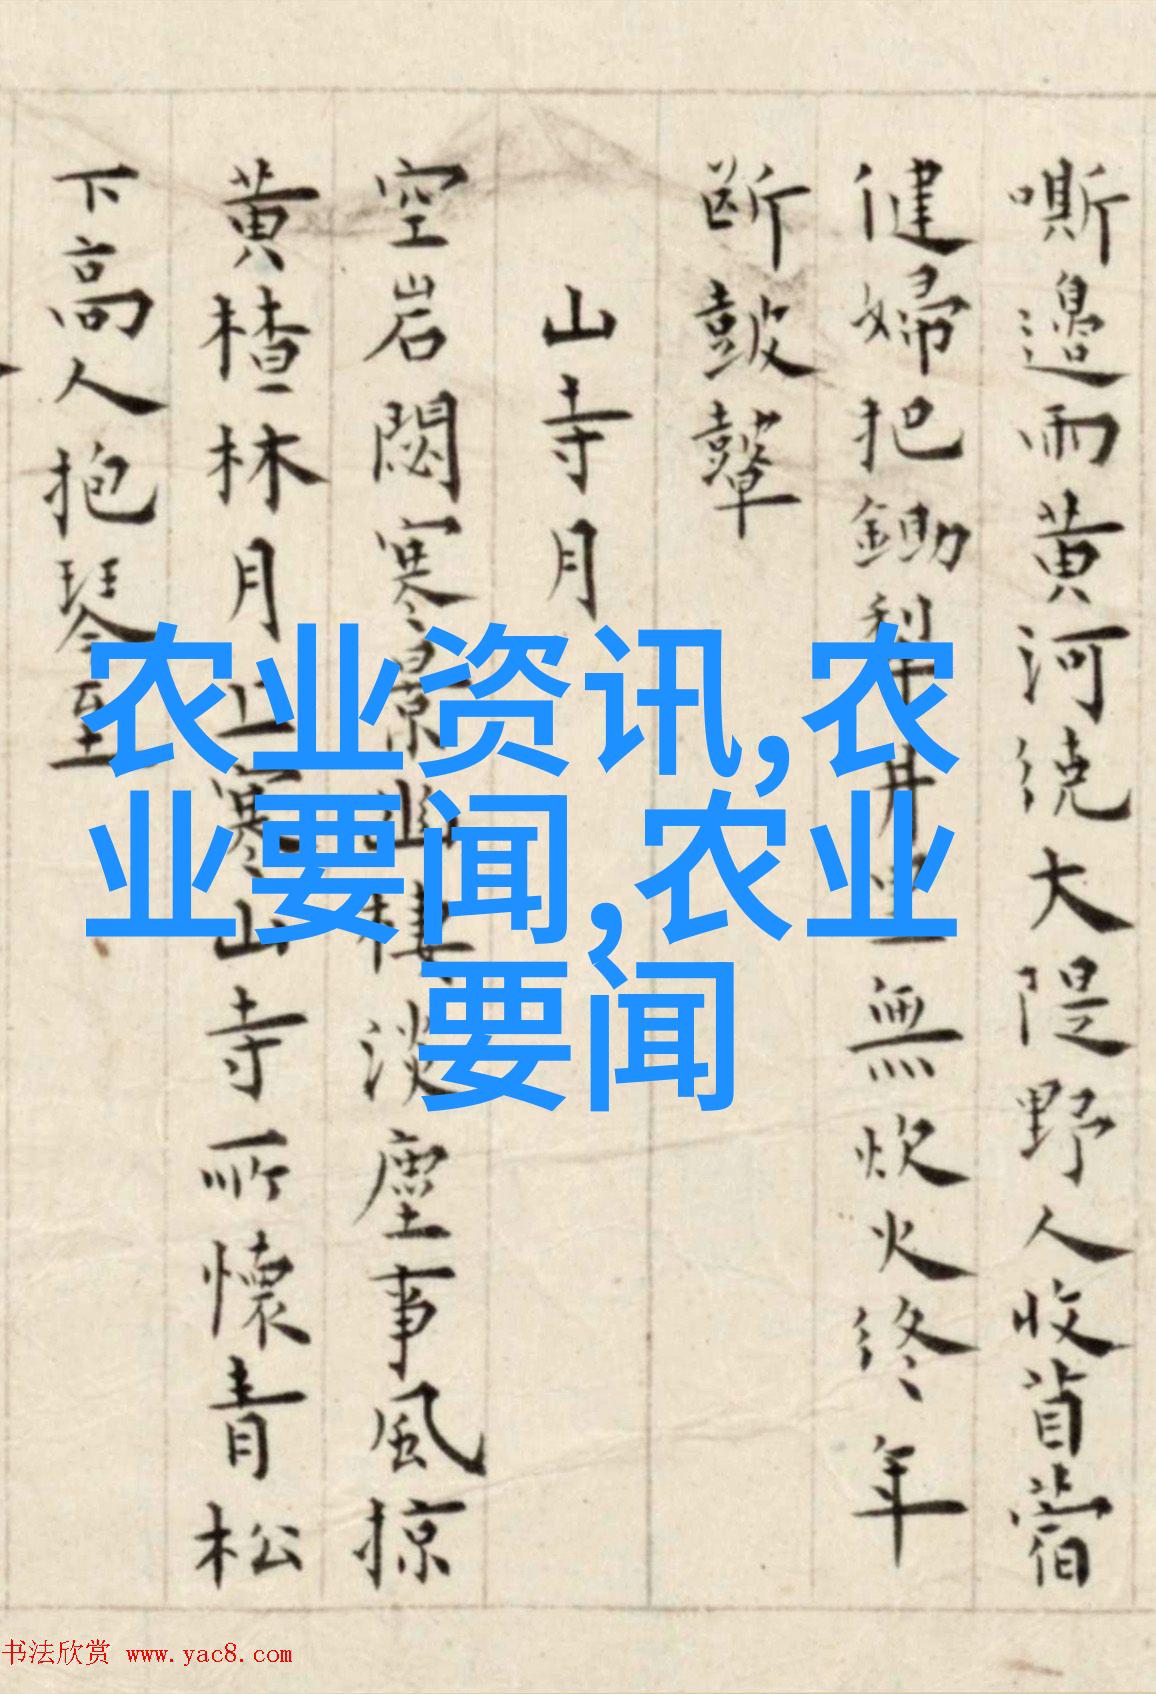 嘶邊雨黄河繞大隄野人收苜蓿
健婦把鋤犁 井 無炊火終年
斷鼓鼙
山寺月
空岩閟寒景幽棲淡塵事風掠
黄楂林月上寒山寺所懷青松
下高人抱琴至
农业资讯,农
业要闻,农业
要闻
书法欣赏 www.yac8.com